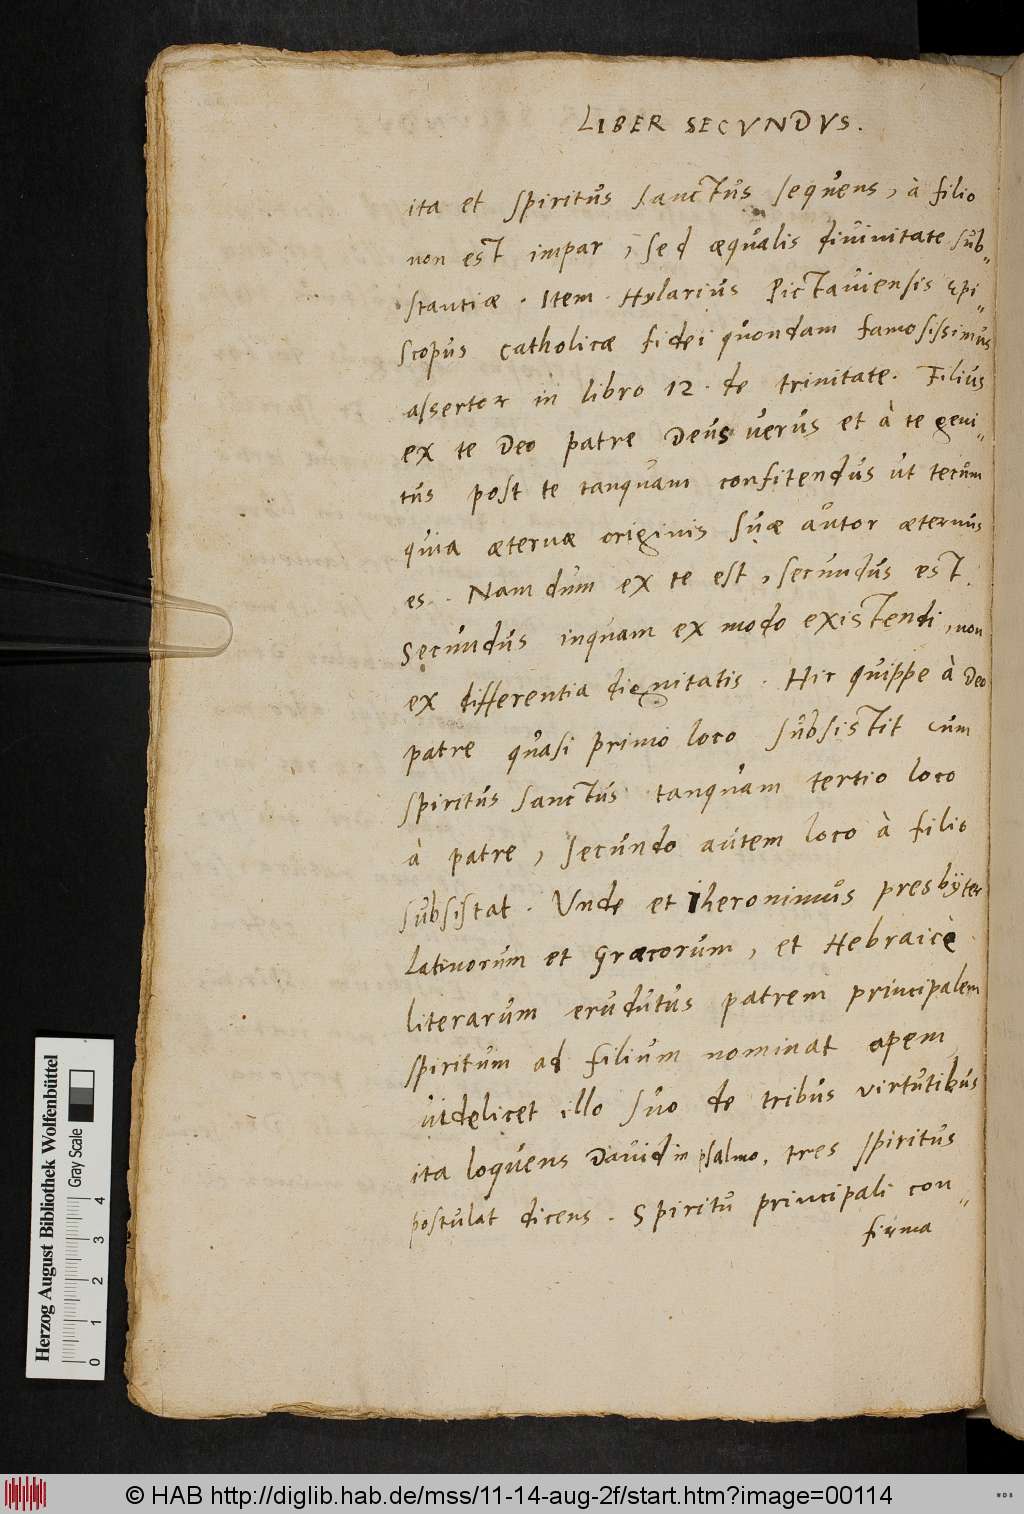 LIBER SECVNDVS.
ita et spiritus sanctus sequens, à filio
non est impar, sed æqualis divinitate sub„
stantiæ. Item. Hylarius Pictaviensis Epi„
scopus catholicæ fidei quondam famosissimus
assertor in libro 12. de trinitate. Filius
ex te Deo patre Deus verus et à te geni„
tus post te tanquam confitendus ut tecum
quia æternæ originis suæ autor æternus
es. Nam dum ex te est, secundus est.
Secundus inquam ex modo existendi, non
ex differentia dignitatis. Hic quippe à Deo
patre quasi primo loco subsistit cum
spiritus sanctus tanquam tertio loco
à patre, secundo autem loco à filio
subsistat. Unde et iheronimus presbÿter
latinorum et Græcorum, et Hebraicè
literarum erudutus patrem principalem
spiritum ad filium nominat apem
videlicet illo suo de tribus virtutibus
ita loquens David in psalmo, tres spiritus
postulat dicens. Spiritu principali con„
firma
Herzog August Bibliothek Wolfenbüttel
Gray Scale
0 1 2 3 4
© HAB http://diglib.hab.de/mss/11-14-aug-2f/start.htm?image=00114